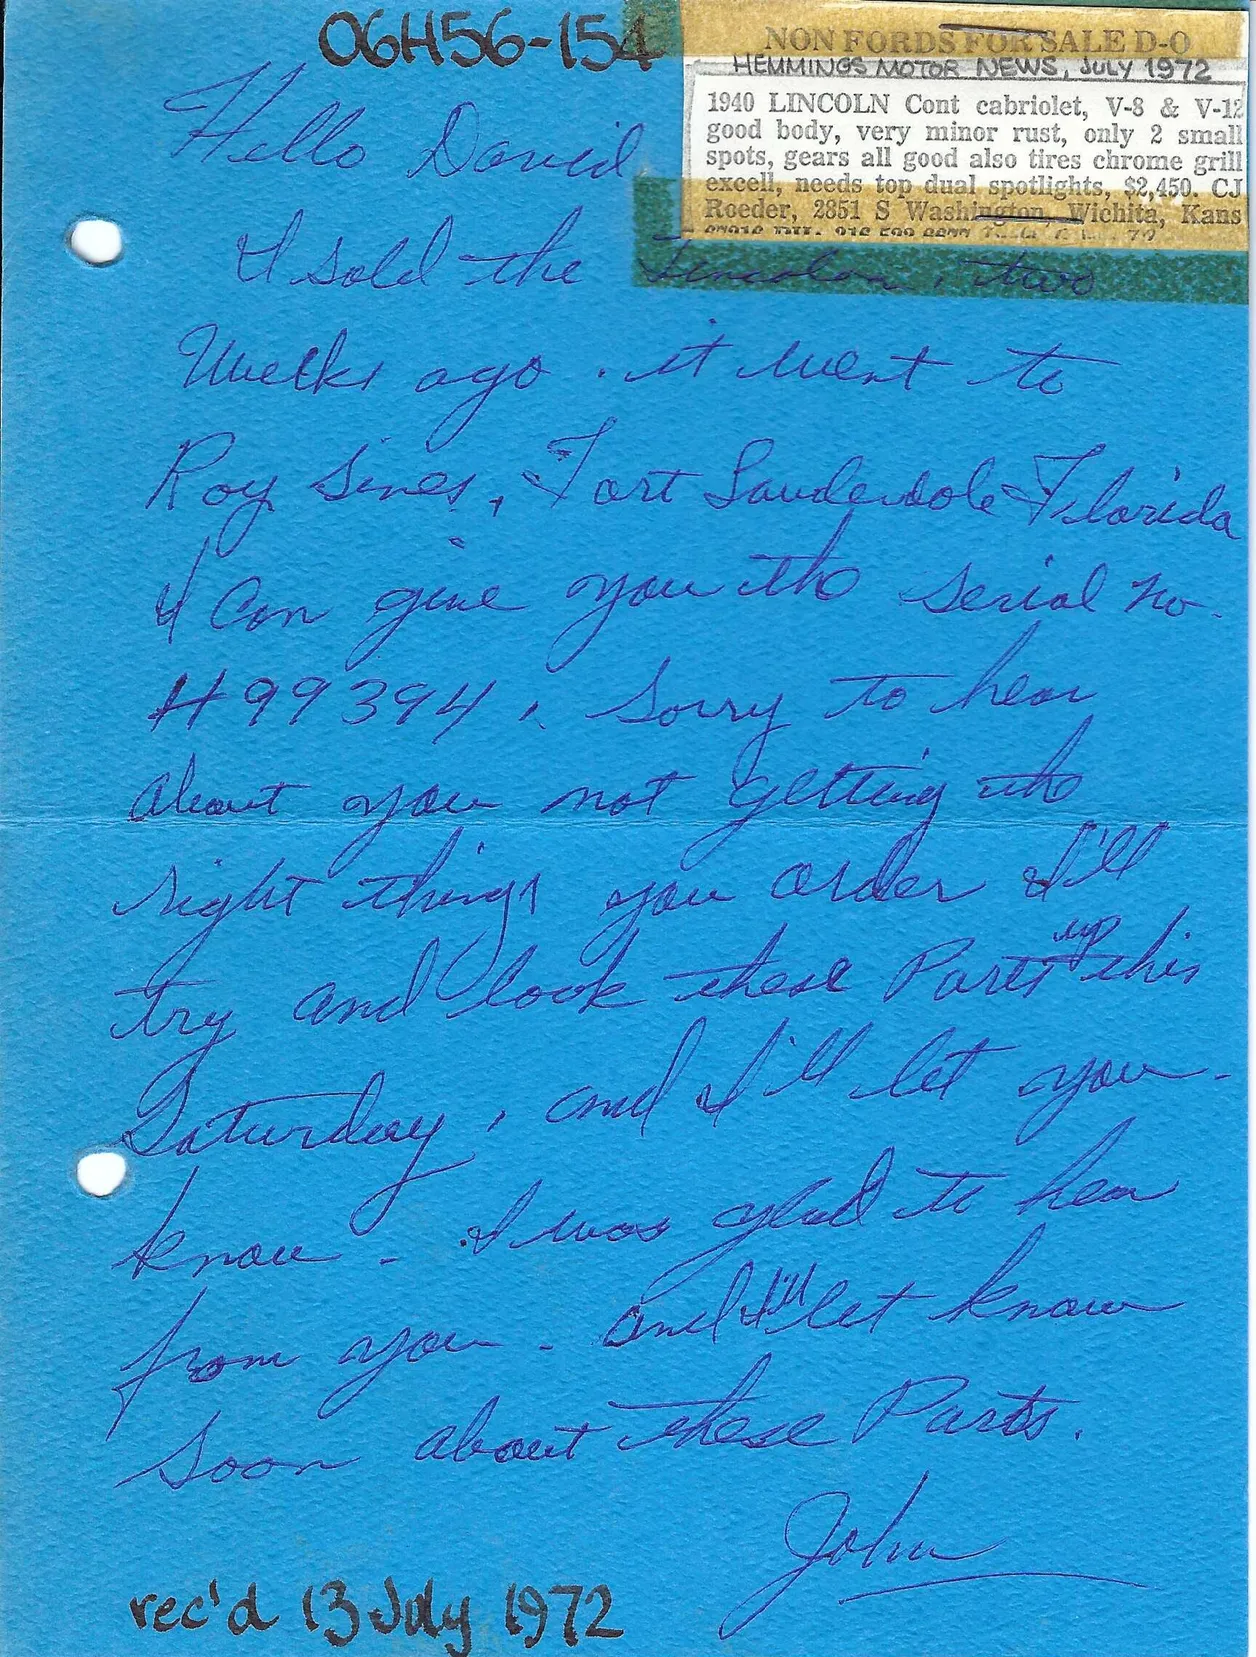 06H56-154
NON FORDS FOR SALE D-O
HEMMINGS MOTOR NEWS, July 1972
1940 LINCOLN Cont cabriolet, V-8 & V-12
good body, very minor rust, only 2 small
spots, gears all good also tires chrome grill
excell, needs top dual spotlights, $2,450. CJ
Roeder, 2851 S Washington, Wichita, Kans
Hello David
I sold the Lincoln, two
Weeks ago. it went to
Roy Sines, Fort Lauderdole Florida
I Can give you the serial no.
H99394. Sorry to hear
about you not getting the
right things you order I'll
try and look these Parts up this
Saturday, and I'll let you
know - I was glad to hear
from you - and I'll let know
soon about these Parts.
John
rec'd 13 July 1972